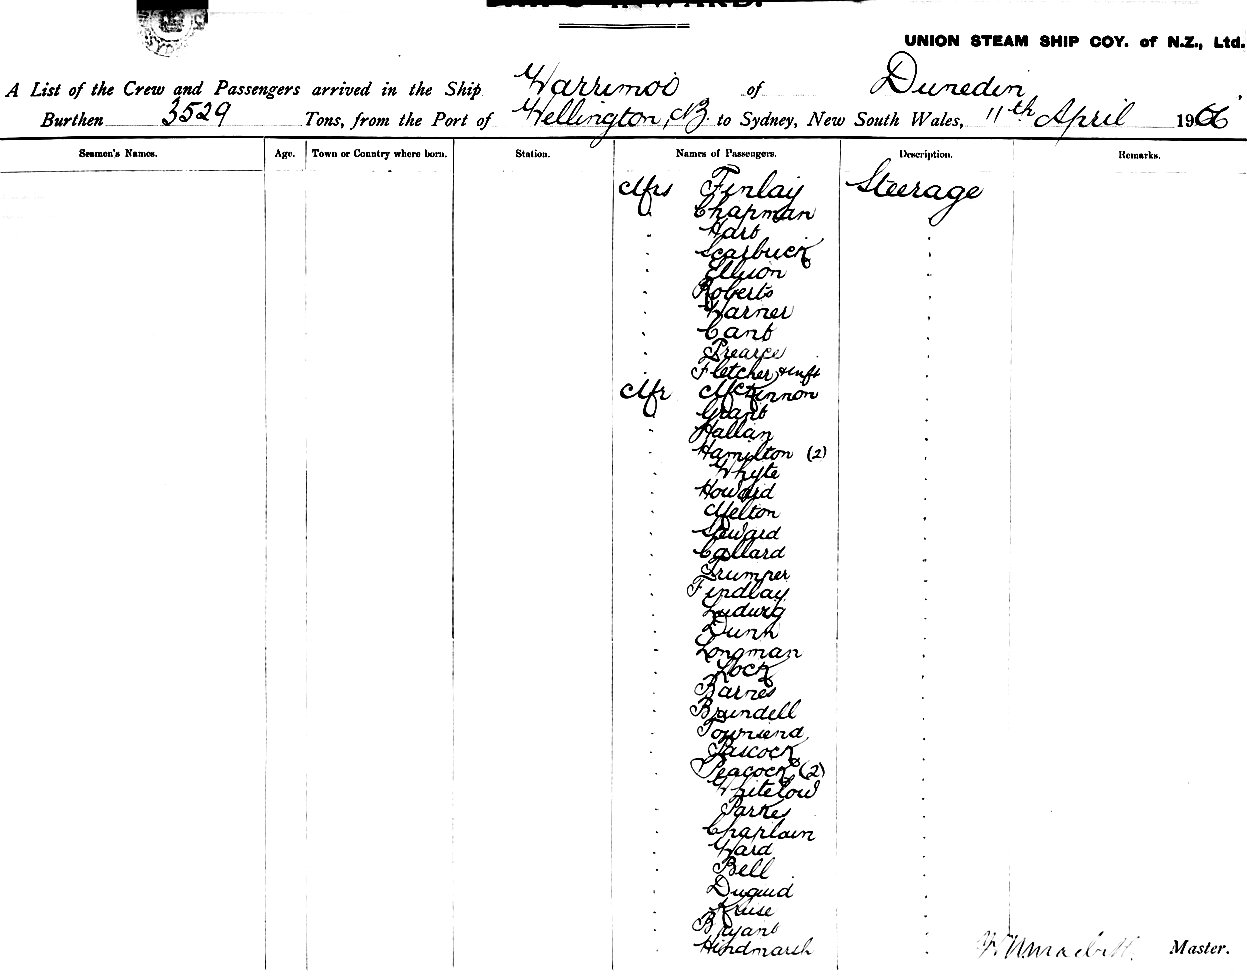 INWARD.
UNION STEAM SHIP COY. of N.Z., Ltd.
A List of the Crew and Passengers arrived in the Ship Warrimoo of Dunedin
Burthen 3529 Tons, from the Port of Wellington, NZ. to Sydney, New South Wales, 11th April 1906
Seamen's Names. Age. Town or Country where born. Station. Names of Passengers. Description. Remarks.
Mrs Finlay Steerage
" Chapman "
" Hart "
" Scarbuck "
" Ellison "
" Roberts "
" Warner "
" Cant "
" Pearce "
" Fletcher & inft "
Mr McKinnon "
" Grant "
" Hallan "
" Hamilton (2) "
" Whyte "
" Howard "
" Melton "
" Steward "
" Collard "
" Trumper "
" Findlay "
" Ludwig "
" Dunn "
" Longman "
" Lock "
" Barnes "
" Brundell "
" Townsend "
" Pascock "
" Peacock (2) "
" Whitelow "
" Parkes "
" Chaplain "
" Ward "
" Bell "
" Duguid "
" Kruse "
" Bryant "
" Hindmarsh
Master.